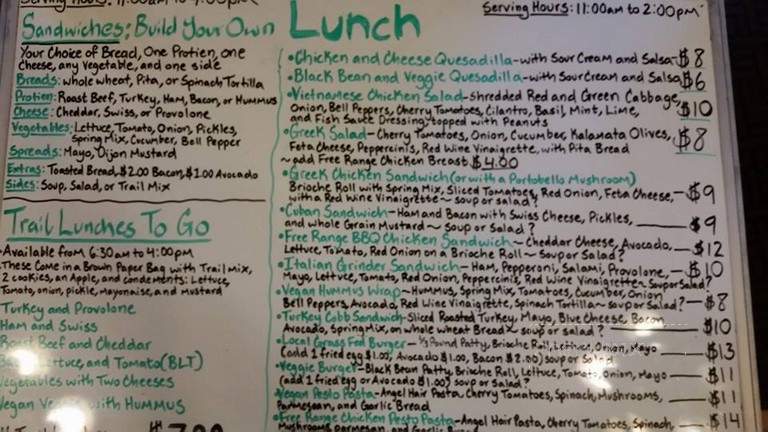 Serving Hours: 11:00am to 2:00pm
Lunch
Sandwiches: Build Your Own
Your Choice of Bread, One Protien, one
cheese, any Vegetable, and one side
Breads: whole wheat, Pita, or Spinach Tortilla
Protien: Roast Beef, Turkey, Ham, Bacon, or Hummus
Cheese: Cheddar, Swiss, or Provolone
Vegetables: Lettuce, Tomato, Onion, Pickles,
Spring Mix, Cucumber, Bell Pepper
Spreads: Mayo, Dijon Mustard
Extras: Toasted Bread, $2.00 Bacon, $1.00 Avocado
Sides: Soup, Salad, or Trail Mix
Trail Lunches To Go
•Available from 6:30am to 4:00pm
These Come in a Brown Paper Bag with Trail Mix,
2 cookies, an Apple, and condements: Lettuce,
Tomato, onion, pickle, mayonaise, and mustard
Turkey and Provolone
Ham and Swiss
Roast Beef and Cheddar
Lettuce, and Tomato (BLT)
Vegetables with Two Cheeses
Vegan Veggie with Hummus
•Chicken and Cheese Quesadilla - with Sour Cream and Salsa $8
•Black Bean and Veggie Quesadilla - with Sour Cream and Salsa $6
•Vietnamese Chicken Salad - shredded Red and Green Cabbage,
Onion, Bell Peppers, Cherry Tomatoes, Cilantro, Basil, Mint, Lime, $10
and Fish Sauce Dressing - topped with Peanuts
•Greek Salad - Cherry Tomatoes, Onion, Cucumber, Kalamata Olives, $8
Feta Cheese, Peppercinis, Red Wine Vinaigrette, with Pita Bread
~ add Free Range Chicken Breast $4.00
•Greek Chicken Sandwich (or with a Portobello Mushroom)
Brioche Roll with Spring Mix, Sliced Tomatoes, Red Onion, Feta Cheese, $9
with a Red Wine Vinaigrette ~ soup or salad?
•Cuban Sandwich - Ham and Bacon with Swiss Cheese, Pickles,
and whole Grain Mustard ~ Soup or Salad? $9
•Free Range BBQ Chicken Sandwich ~ Cheddar Cheese, Avocado, $12
Lettuce, Tomato, Red Onion on a Brioche Roll ~ Soup or Salad?
•Italian Grinder Sandwich - Ham, Pepperoni, Salami, Provolone, $10
Mayo, Lettuce, Tomato, Red Onion, Peppercinis, Red Wine Vinaigrette ~ Soup or Salad?
•Vegan Hummus Wrap - Hummus, Spring Mix, Tomatoes, Cucumber, Onion,
Bell Peppers, Avocado, Red Wine Vinaigrette, Spinach Tortilla ~ soup or salad? $8
•Turkey Cobb Sandwich - Sliced Roasted Turkey, Mayo, Blue Cheese, Bacon
Avocado, Spring Mix, on whole wheat Bread ~ soup or salad? $10
•Local Grass Fed Burger - 1/3 Pound Patty, Brioche Roll, Lettuce, Onion, Mayo $13
(add 1 fried egg $1.00, Avocado $1.00, Bacon $2.00) soup or Salad
•Veggie Burger - Black Bean Patty, Brioche Roll, Lettuce, Tomato, Onion, Mayo $11
(add 1 fried egg or Avocado $1.00) soup or salad?
•Vegan Pesto Pasta - Angel Hair Pasta, Cherry Tomatoes, Spinach, Mushrooms, $11
Parmesan, and Garlic Bread
•Free Range Chicken Pesto Pasta - Angel Hair Pasta, Cherry Tomatoes, Spinach, $14